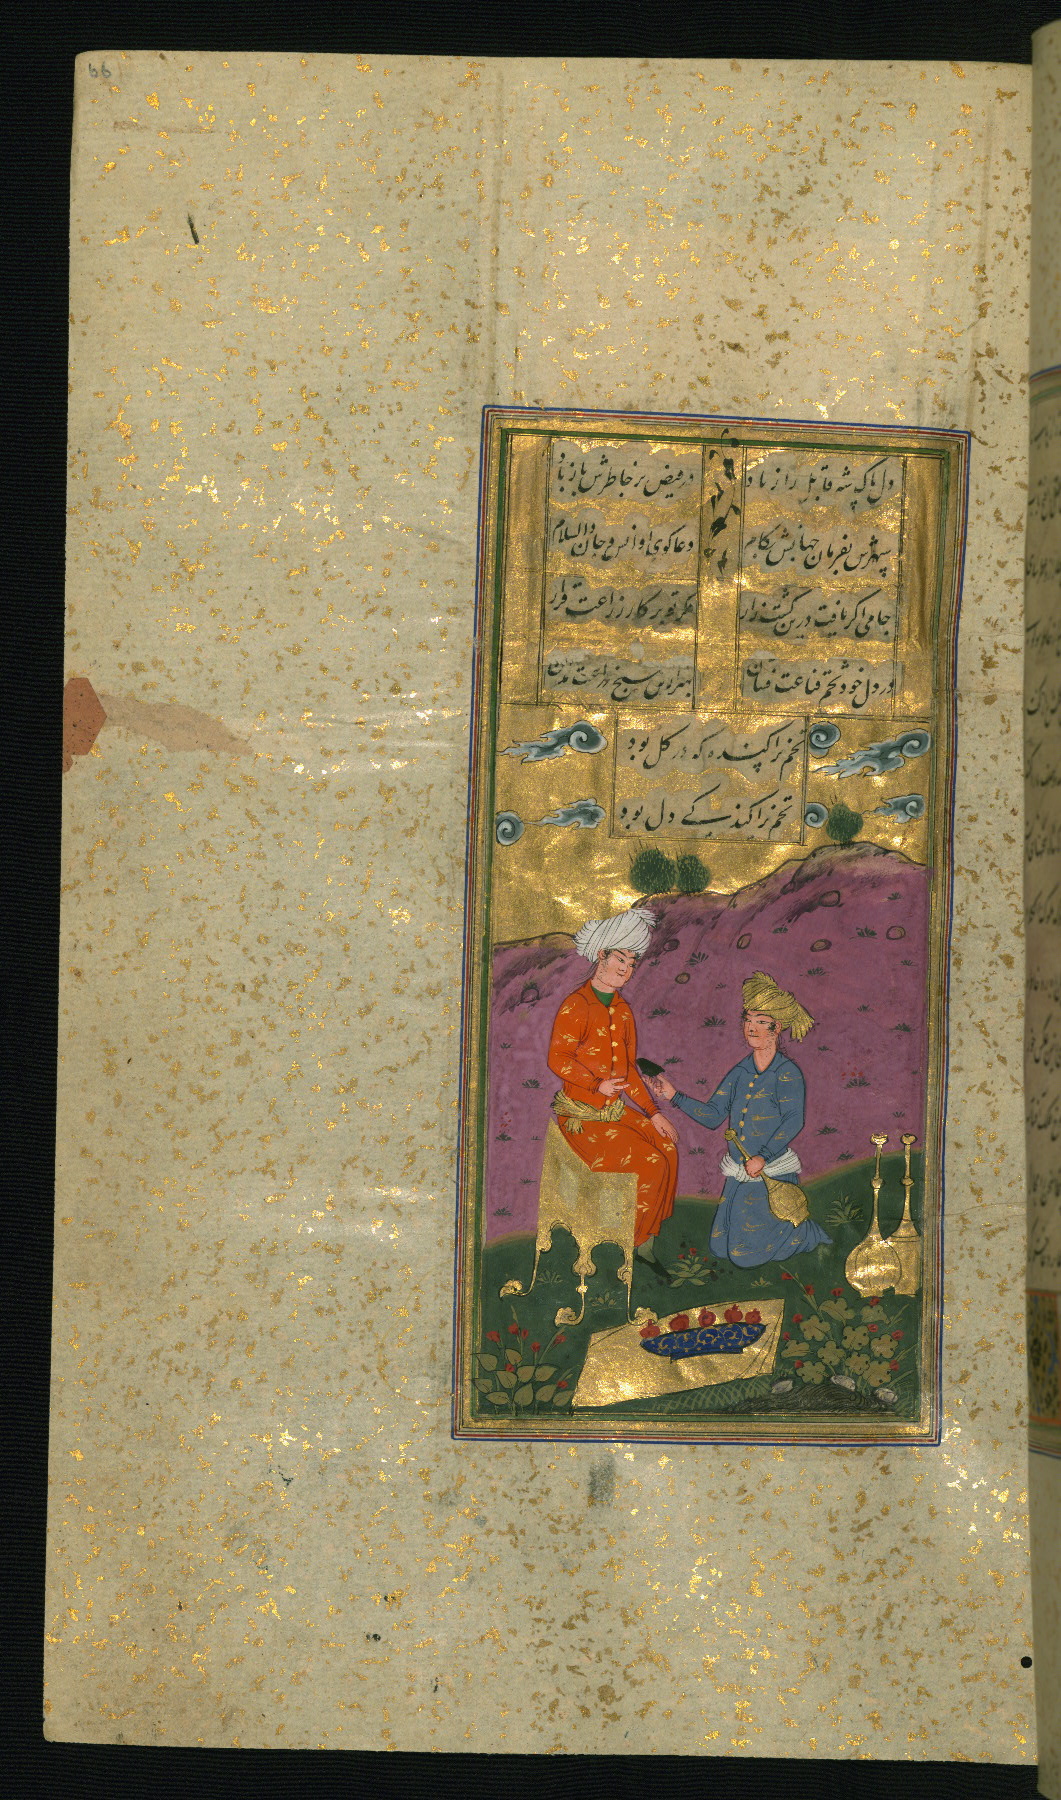 66
دل پاکش قابل راز باد
در فیض بر خاطرش باز باد
سپهرش بفرمان جهانش بکام
دعا گوی او انس و جان والسلام
جامی اگر یافت درین کشت زار
مگر تو بر کار زراعت قرار
در دل خود تخم قناعت فشان
تخم پراکنده که در گل بود
تخم پراکندگی دل بود